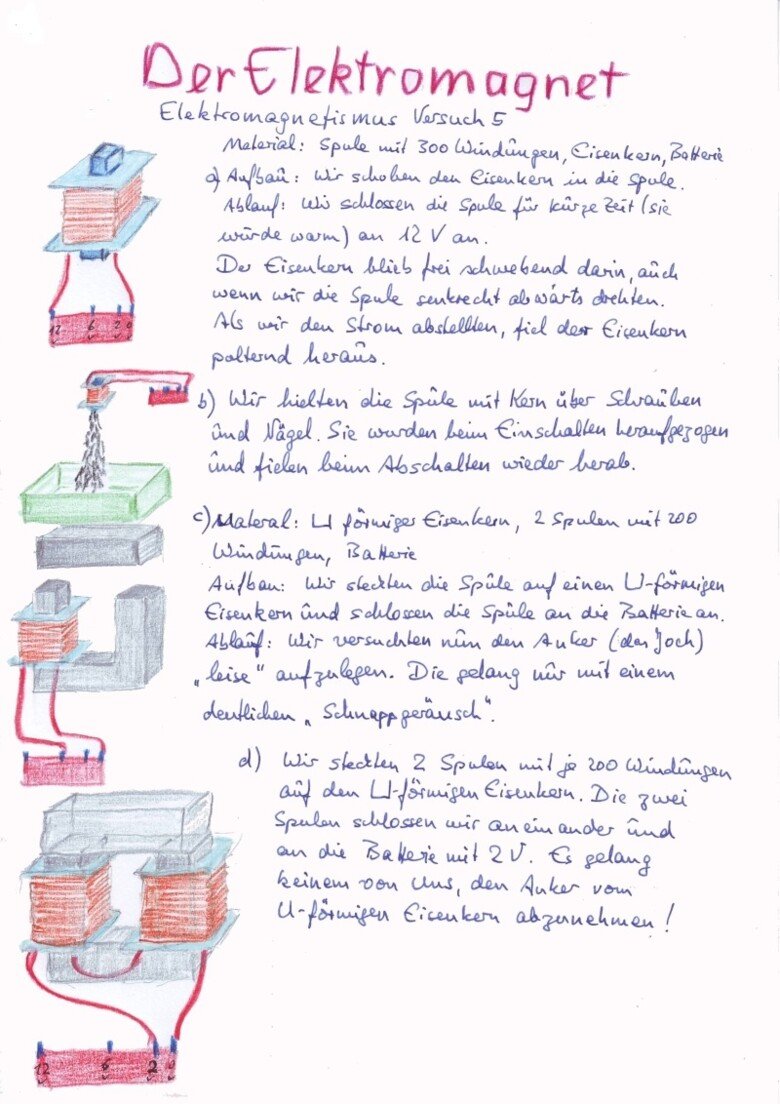 Der Elektromagnet
Elektromagnetismus Versuch 5
Material: Spule mit 300 Windungen, Eisenkern, Batterie
a) Aufbau: Wir schoben den Eisenkern in die Spule.
Ablauf: Wir schlossen die Spule für kurze Zeit (sie
wurde warm) an 12 V an.
Der Eisenkern blieb frei schwebend darin, auch
wenn wir die Spule senkrecht abwärts drehten.
Als wir den Strom abstellten, fiel der Eisenkern
polternd heraus.
12 6 2 0
b) Wir hielten die Spule mit Kern über Schrauben
und Nägel. Sie wurden beim Einschalten heraufgezogen
und fielen beim Abschalten wieder herab.
c) Materal: U förmiger Eisenkern, 2 Spulen mit 200
Windungen, Batterie
Aufbau: Wir steckten die Spule auf einen U-förmigen
Eisenkern und schlossen die Spule an die Batterie an.
Ablauf: Wir versuchten nun den Anker (das Joch)
„leise" aufzulegen. Die gelang nur mit einem
deutlichen „Schnappgeräusch".
d) Wir steckten 2 Spulen mit je 200 Windungen
auf den U-förmigen Eisenkern. Die zwei
Spulen schlossen wir aneinander und
an die Batterie mit 2 V. Es gelang
keinem von uns, den Anker vom
U-förmigen Eisenkern abzunehmen!
12 6 2 0